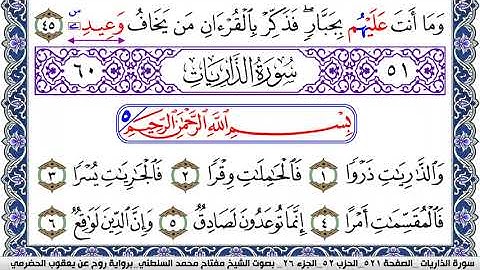 وَمَا أَنتَ عَلَيْهُم بِجَبَّارٍ ۖ فَذَكِّرْ بِالْقُرْءَانِ مَن يَخَافُ وَعِيدِ ٤٥
٥١ سُورَةُ الذَّارِيَاتِ ٦٠
بِسْمِ ٱللَّهِ ٱلرَّحْمَٰنِ ٱلرَّحِيمِ
وَٱلذَّٰرِيَٰتِ ذَرْوًا ١ فَٱلْحَٰمِلَٰتِ وِقْرًا ٢ فَٱلْجَٰرِيَٰتِ يُسْرًا ٣
فَٱلْمُقَسِّمَٰتِ أَمْرًا ٤ إِنَّمَا تُوعَدُونَ لَصَادِقٌ ٥ وَإِنَّ ٱلدِّينَ لَوَٰقِعٌ ٦
سورة الذاريات _الصفحة ٥٢١_ الحزب ٥٢_ الجزء ٢٦_ بصوت الشيخ مفتاح محمد السلطني_برواية روح عن يعقوب الحضرمي